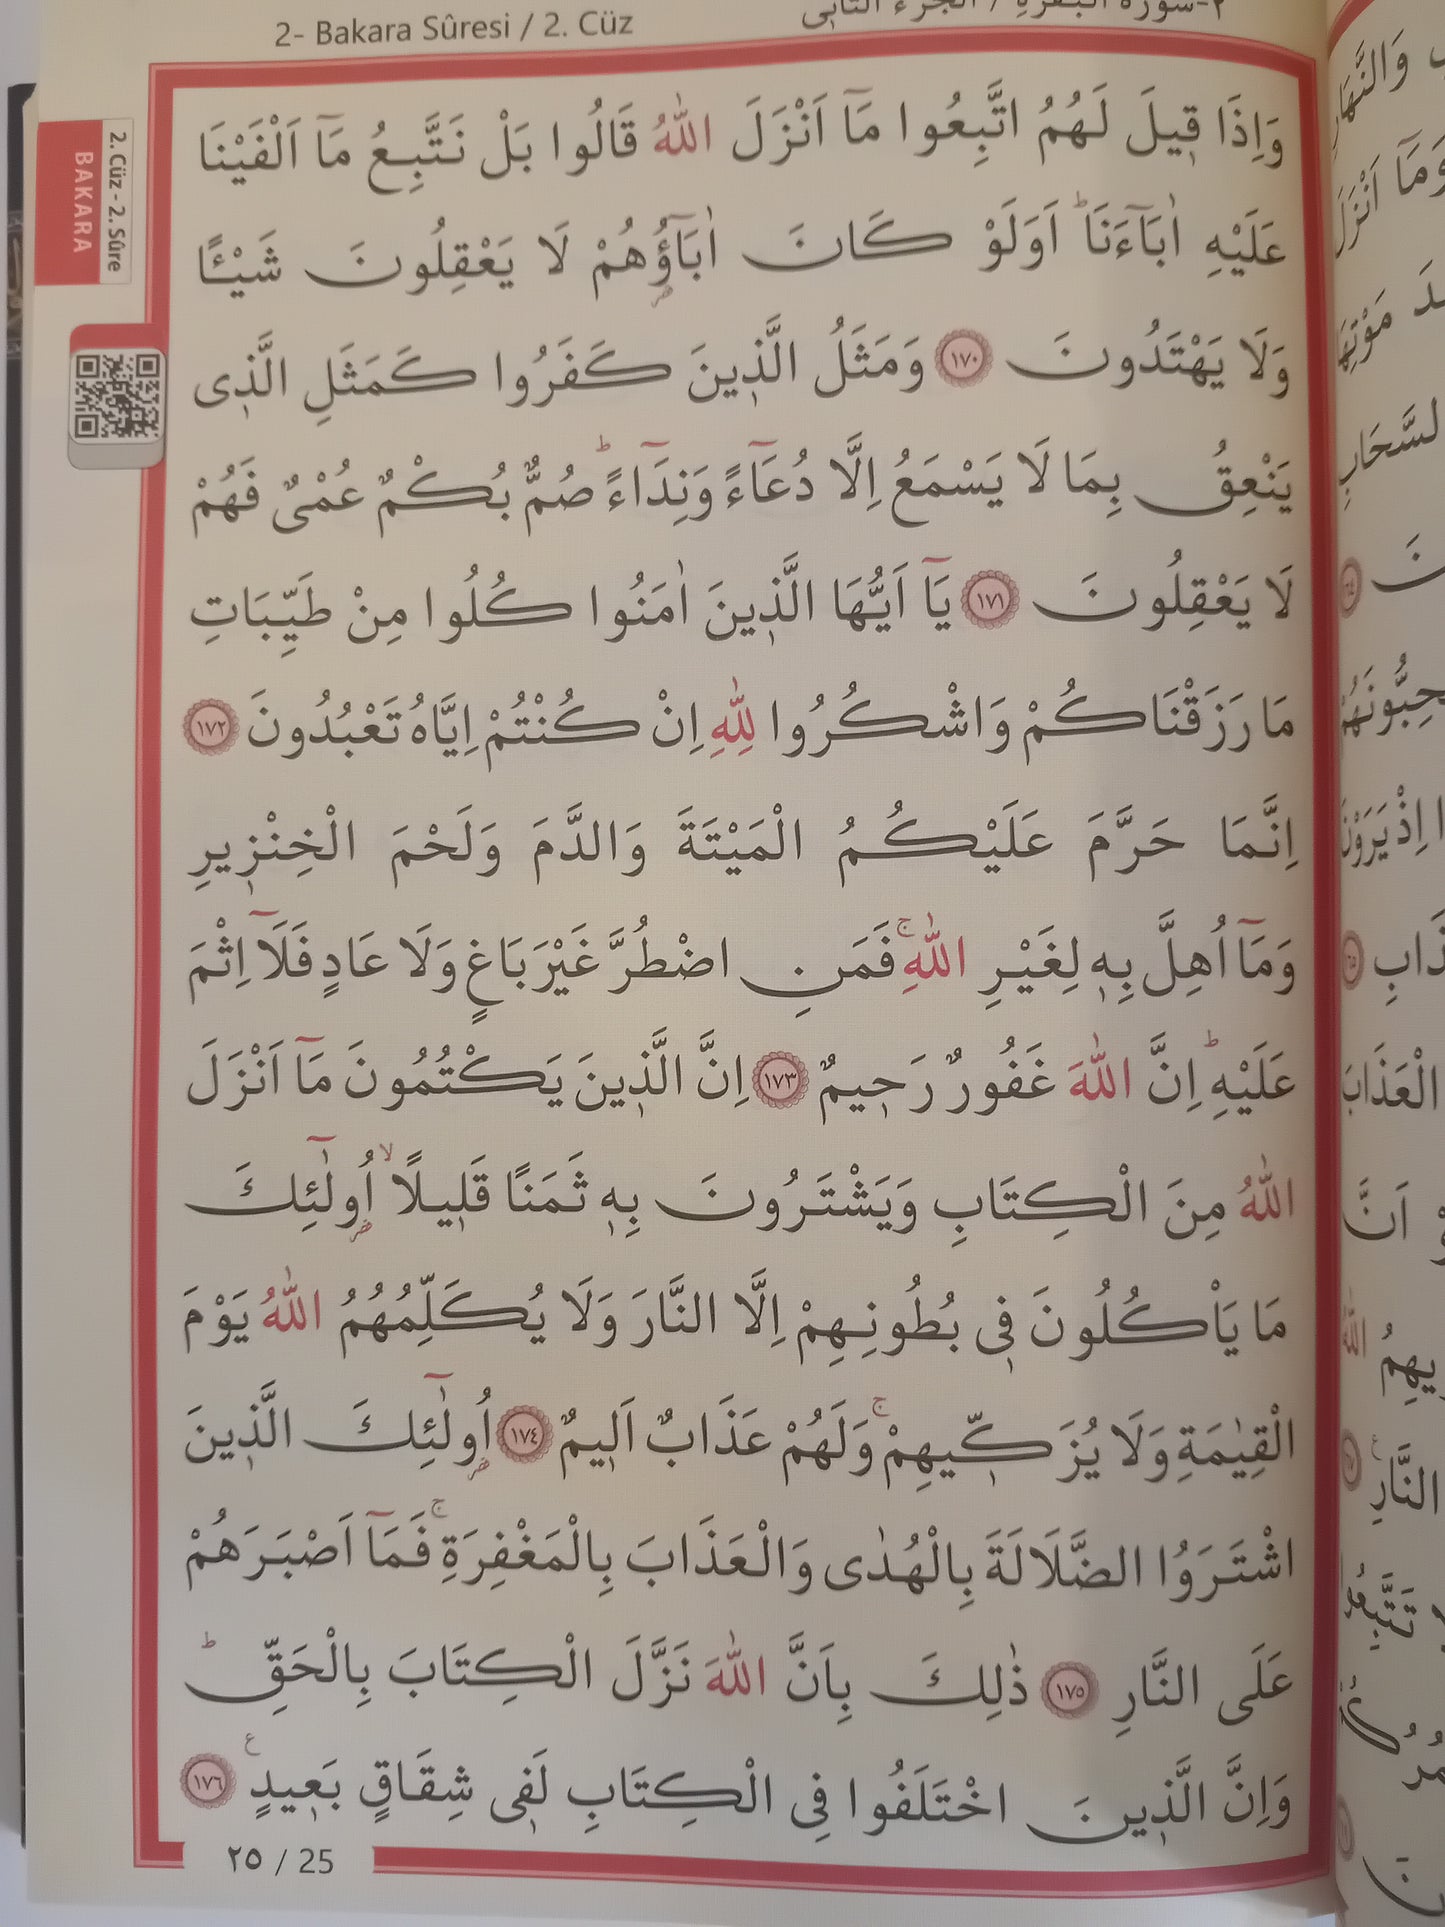 2- Bakara Sûresi / 2. Cüz
٢-سورة البقرة / الجزء الثاني
2. Cüz - 2. Sûre
BAKARA
وَاِذَا قٖيلَ لَهُمُ اتَّبِعُوا مَٓا اَنْزَلَ اللّٰهُ قَالُوا بَلْ نَتَّبِعُ مَٓا اَلْفَيْنَا
عَلَيْهِ اٰبَٓاءَنَاۜ اَوَلَوْ كَانَ اٰبَٓاؤُ۬هُمْ لَا يَعْقِلُونَ شَيْـًٔا
وَلَا يَهْتَدُونَ ﴿١٧٠﴾ وَمَثَلُ الَّذٖينَ كَفَرُوا كَمَثَلِ الَّذٖى
يَنْعِقُ بِمَا لَا يَسْمَعُ اِلَّا دُعَٓاءً وَنِدَٓاءًۜ صُمٌّ بُكْمٌ عُمْىٌ فَهُمْ
لَا يَعْقِلُونَ ﴿١٧١﴾ يَٓا اَيُّهَا الَّذٖينَ اٰمَنُوا كُلُوا مِنْ طَيِّبَاتِ
مَا رَزَقْنَاكُمْ وَاشْكُرُوا لِلّٰهِ اِنْ كُنْتُمْ اِيَّاهُ تَعْبُدُونَ ﴿١٧٢﴾
اِنَّمَا حَرَّمَ عَلَيْكُمُ الْمَيْتَةَ وَالدَّمَ وَلَحْمَ الْخِنْزٖيرِ
وَمَٓا اُهِلَّ بِهٖ لِغَيْرِ اللّٰهِۚ فَمَنِ اضْطُرَّ غَيْرَ بَاغٍ وَلَا عَادٍ فَلَٓا اِثْمَ
عَلَيْهِۜ اِنَّ اللّٰهَ غَفُورٌ رَحٖيمٌ ﴿١٧٣﴾ اِنَّ الَّذٖينَ يَكْتُمُونَ مَٓا اَنْزَلَ
اللّٰهُ مِنَ الْكِتَابِ وَيَشْتَرُونَ بِهٖ ثَمَنًا قَلٖيلًاۙ اُو۬لٰٓئِكَ
مَا يَأْكُلُونَ فٖى بُطُونِهِمْ اِلَّا النَّارَ وَلَا يُكَلِّمُهُمُ اللّٰهُ يَوْمَ
الْقِيٰمَةِ وَلَا يُزَكّٖيهِمْۚ وَلَهُمْ عَذَابٌ اَلٖيمٌ ﴿١٧٤﴾ اُو۬لٰٓئِكَ الَّذٖينَ
اشْتَرَوُا الضَّلَالَةَ بِالْهُدٰى وَالْعَذَابَ بِالْمَغْفِرَةِۚ فَمَٓا اَصْبَرَهُمْ
عَلَى النَّارِ ﴿١٧٥﴾ ذٰلِكَ بِاَنَّ اللّٰهَ نَزَّلَ الْكِتَابَ بِالْحَقِّۜ
وَاِنَّ الَّذٖينَ اخْتَلَفُوا فِى الْكِتَابِ لَفٖى شِقَاقٍ بَعٖيدٍ ﴿١٧٦﴾ ع
٢٥ / 25
وَالنَّهَارِ
وَمَٓا اَنْزَلَ
مَوْتِهَا
السَّحَابِ
يُحِبُّونَهُمْ
اِذْ يَرَوْنَ
الْعَذَابَ
اَنَّ
اللّٰهُ
النَّارِ